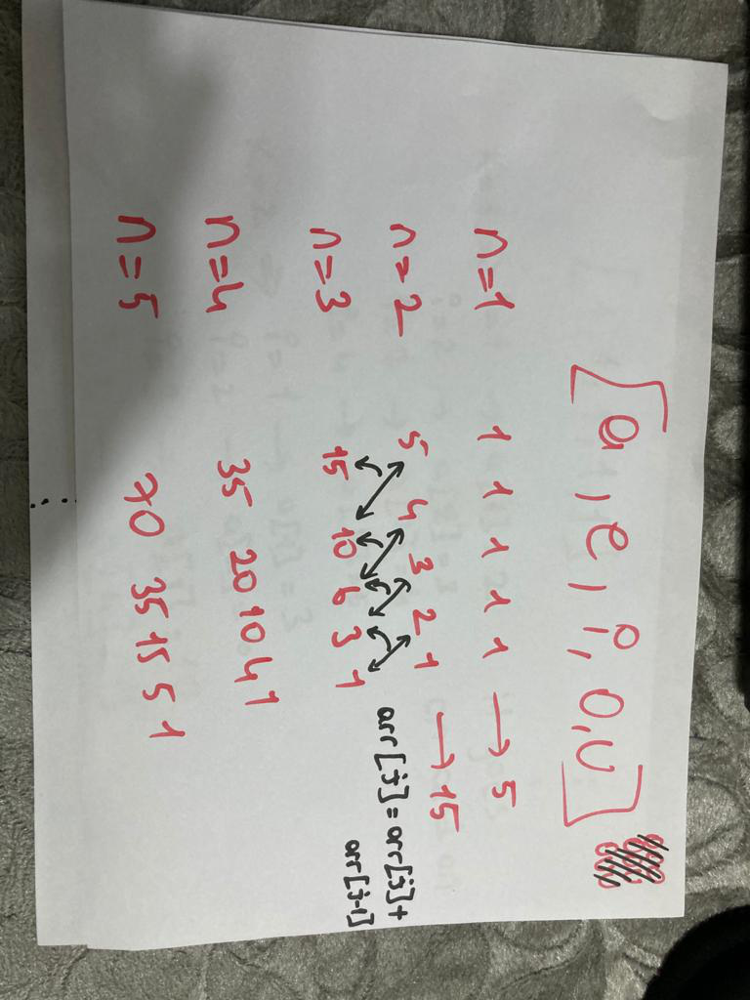 [a, e, i, o, u]
n=1 1 1 1 1 1 → 5
n=2 5 4 3 2 1 → 15
arr[j] = arr[j] +
arr[j-1]
n=3 15 10 6 3 1
n=4 35 20 10 4 1
n=5 70 35 15 5 1